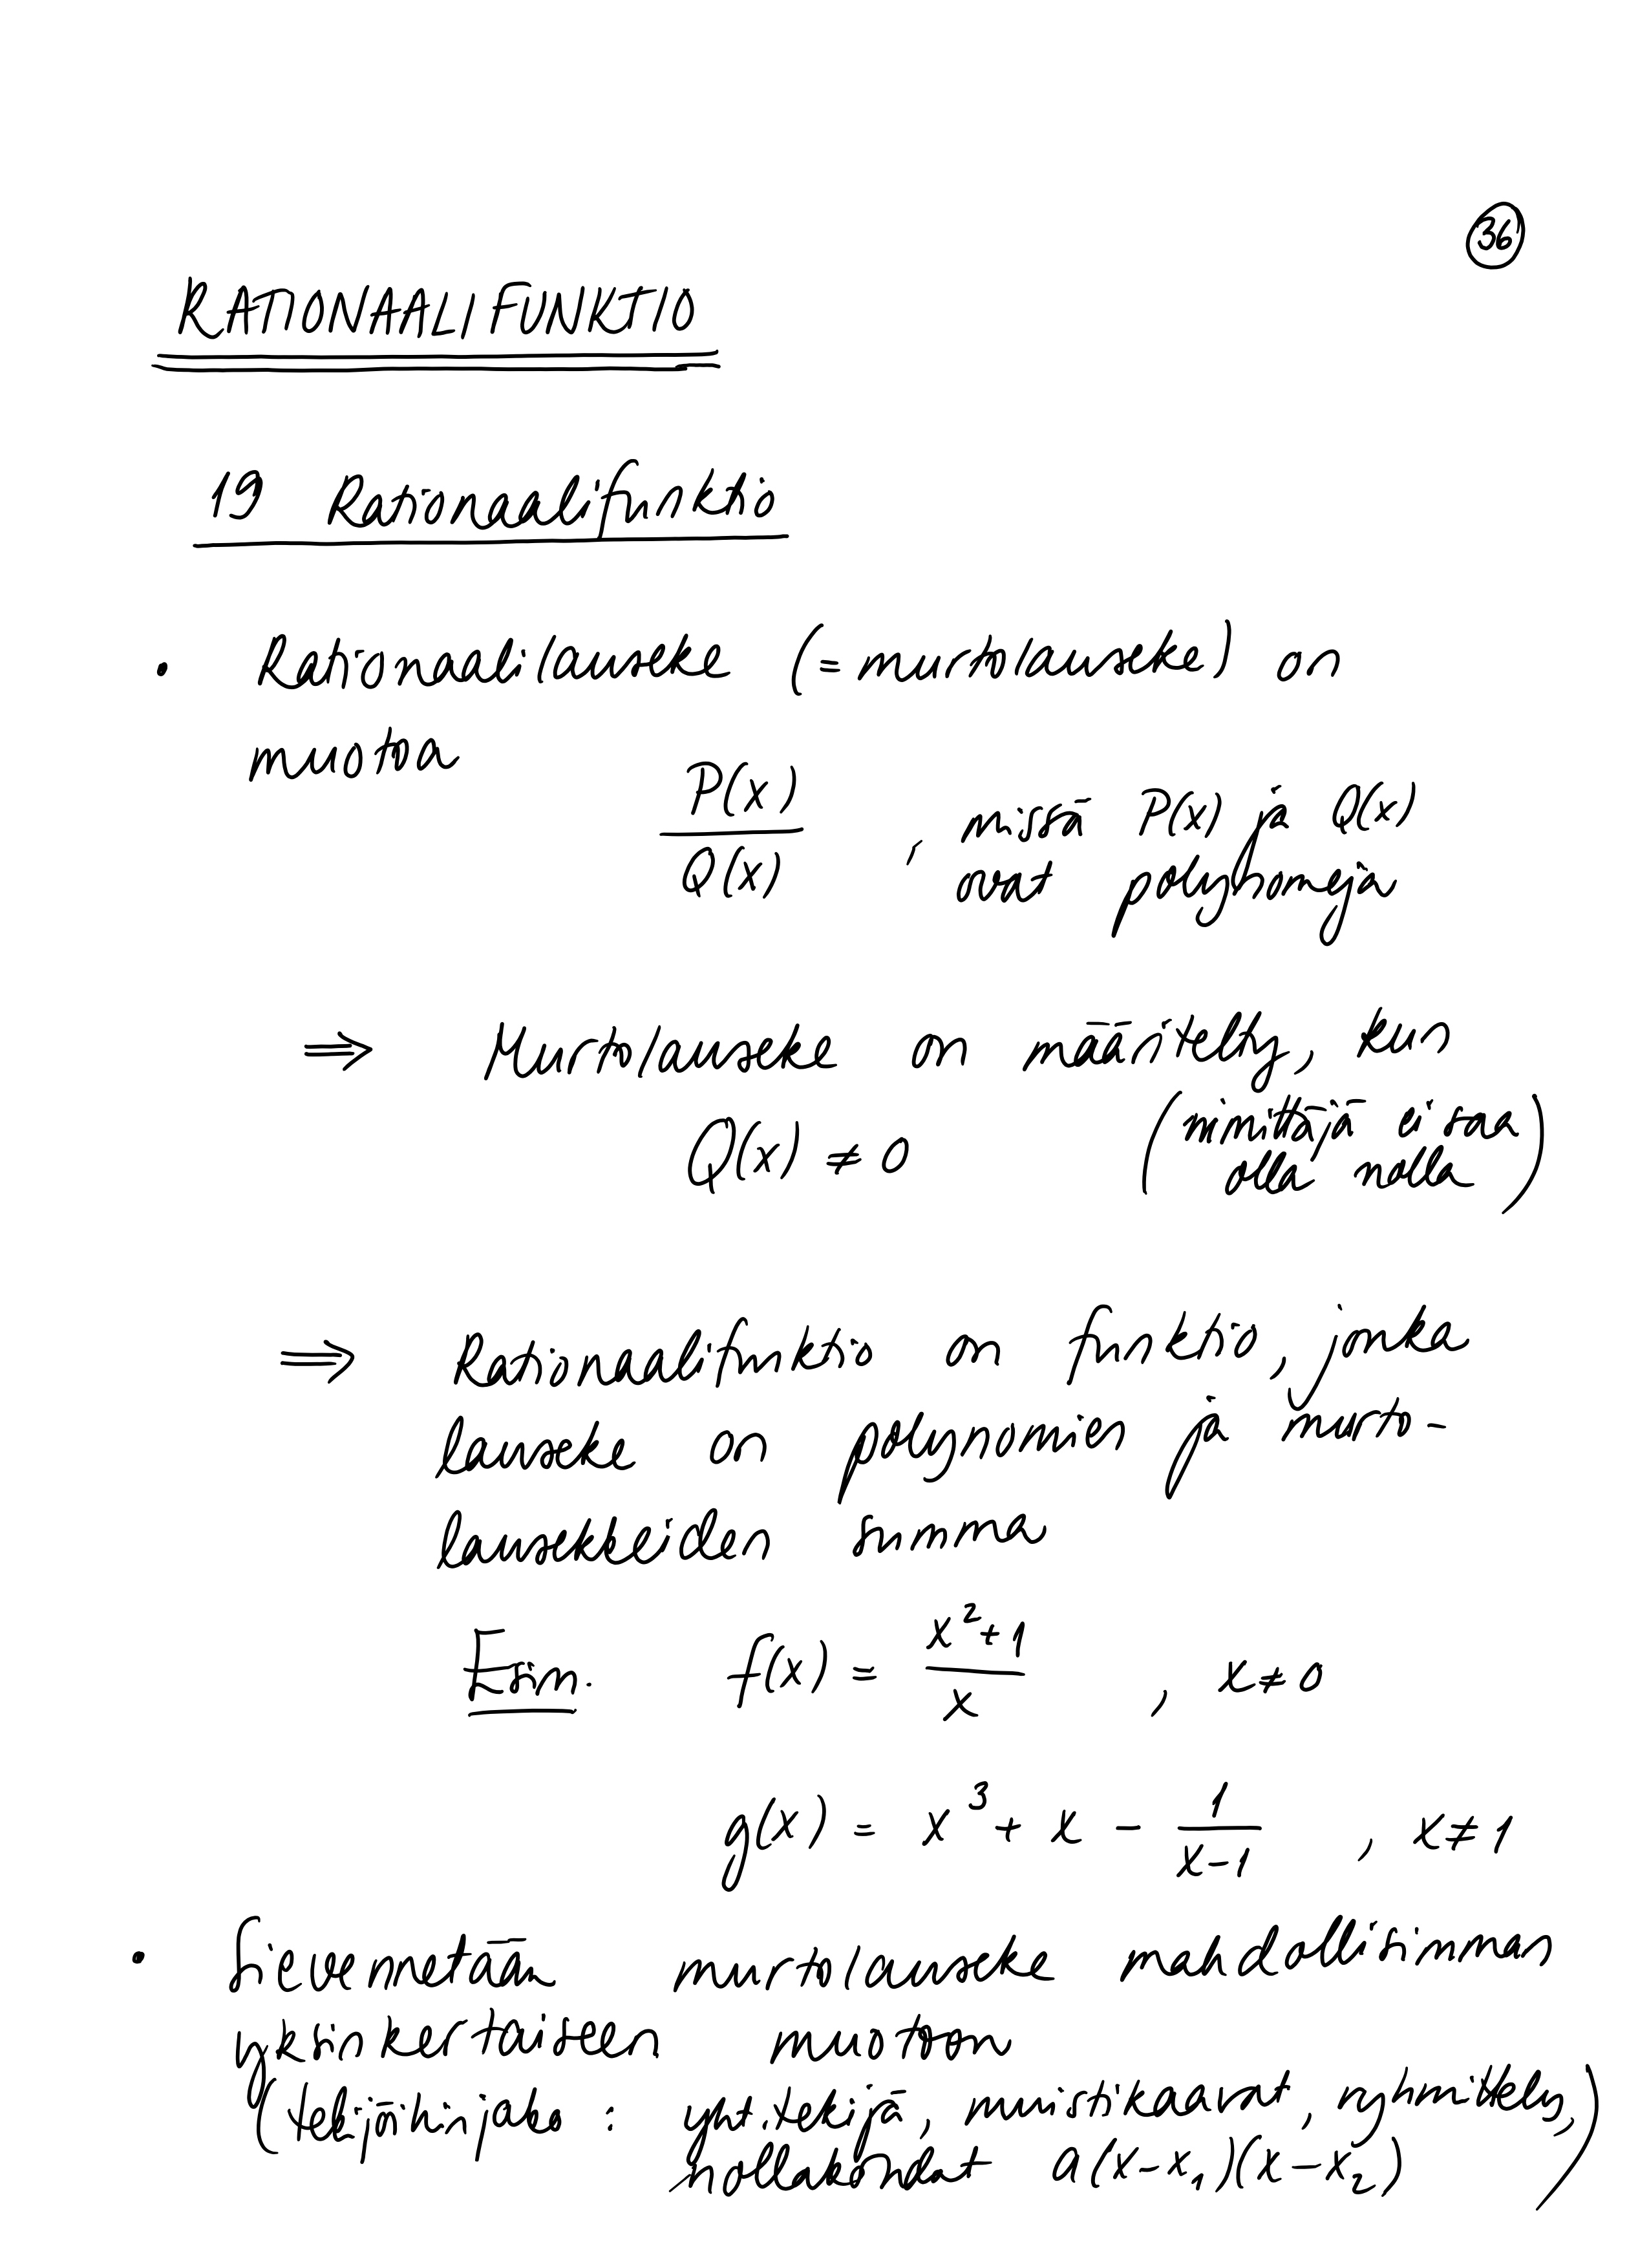 36
RATIONAALIFUNKTIO
19 Rationaalifunktio
• Rationaalilauseke (= murtolauseke) on
muotoa
P(x)/Q(x) , missä P(x) ja Q(x)
ovat polynomeja
⇒ Murtolauseke on määritelty, kun
Q(x) ≠ 0 (nimittäjä ei saa
olla nolla)
⇒ Rationaalifunktio on funktio, jonka
lauseke on polynomien ja murto-
lausekkeiden summa
Esim. f(x) = (x²+1)/x , x≠0
g(x) = x³ + x - 1/(x-1) , x≠1
• Sievennetään murtolauseke mahdollisimman
yksinkertaiseen muotoon
(tekijöihinjako : yht.tekijä, muistikaavat, ryhmittely,
nollakohdat a(x-x₁)(x-x₂))